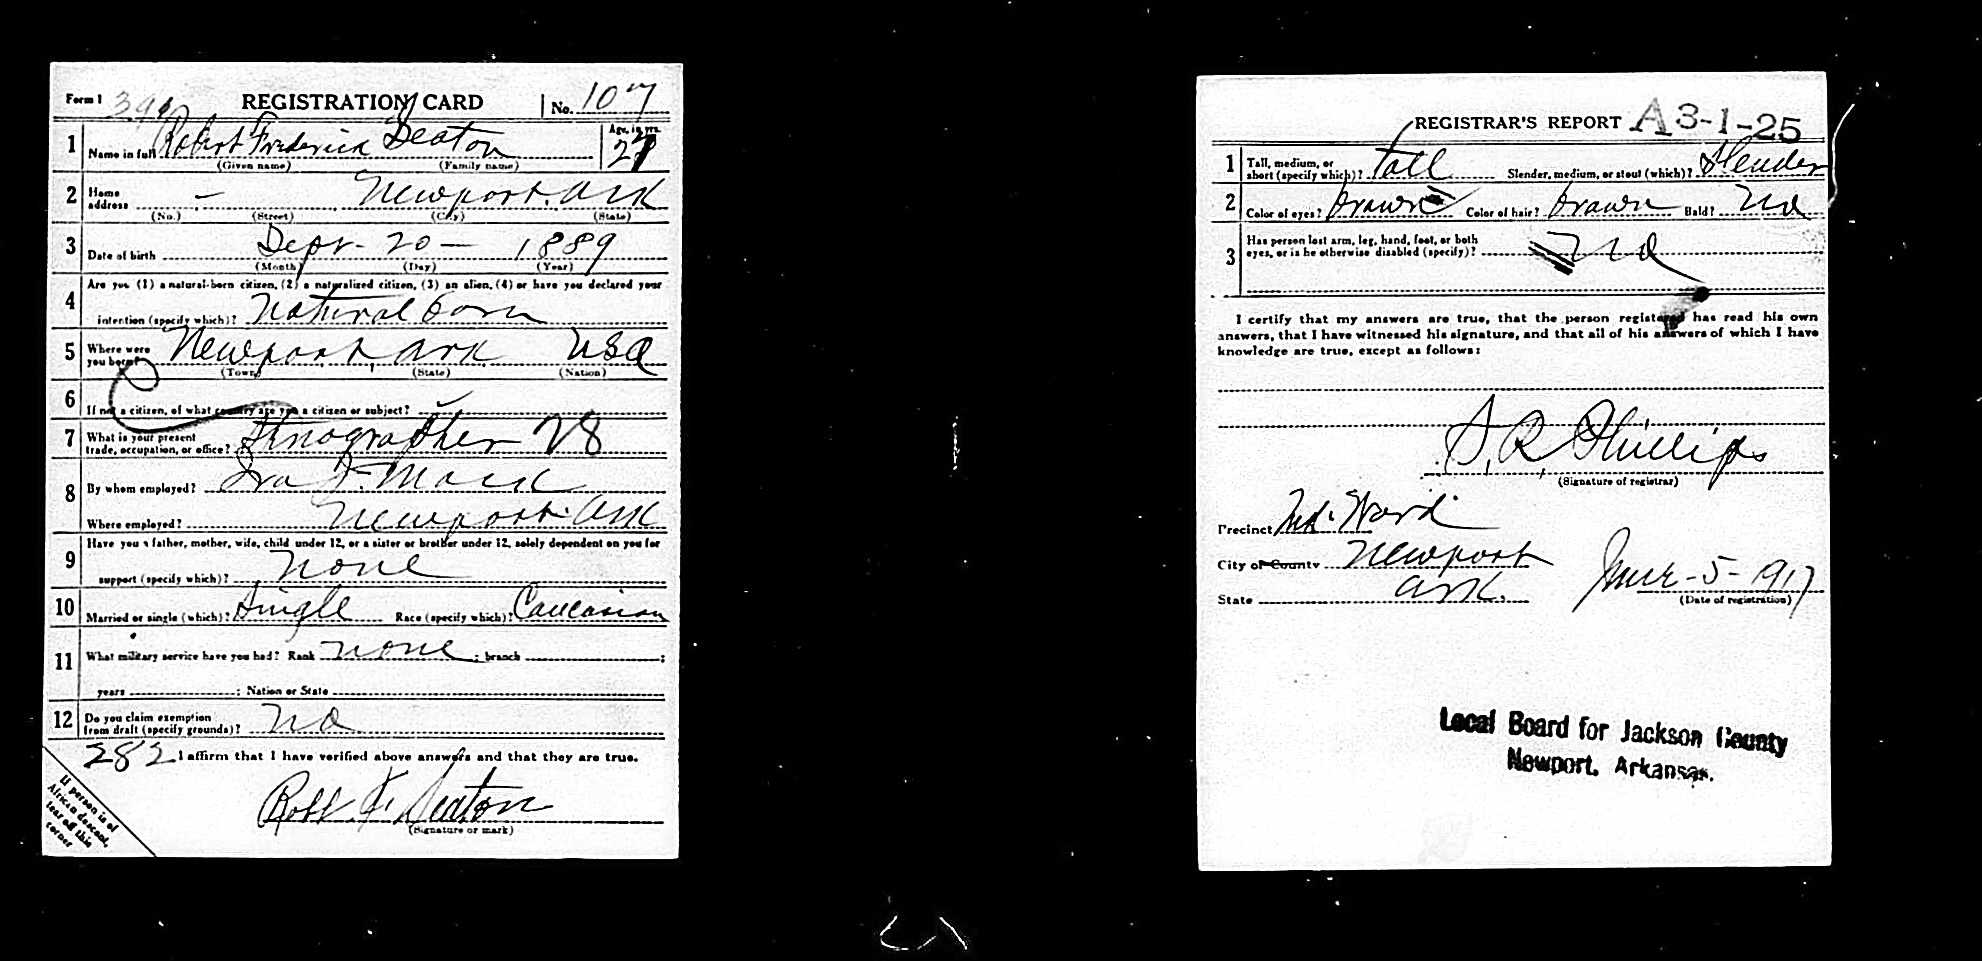 Form 1 REGISTRATION CARD No. 107
1 Name in full Robert Frederick Deaton Age, in yrs. 27
(Given name) (Family name)
2 Home address — Newport. Ark
(No.) (Street) (City) (State)
3 Date of birth Sept - 20 — 1889
(Month) (Day) (Year)
4 Are you (1) a natural-born citizen, (2) a naturalized citizen, (3) an alien, (4) or have you declared your
intention (specify which)? Natural born
5 Where were you born? Newport, Ark USA
(Town) (State) (Nation)
6 If not a citizen, of what country are you a citizen or subject?
7 What is your present
trade, occupation, or office? Stenographer 28
8 By whom employed? Ira J. Mack
Where employed? Newport. Ark
9 Have you a father, mother, wife, child under 12, or a sister or brother under 12, solely dependent on you for
support (specify which)? None
10 Married or single (which)? Single Race (specify which)? Caucasian
11 What military service have you had? Rank None ; branch ;
years ; Nation or State
12 Do you claim exemption
from draft (specify grounds)? No
282 I affirm that I have verified above answers and that they are true.
Robt. F. Deaton
(Signature or mark)
If person is of
African descent,
tear off this
corner
REGISTRAR'S REPORT A 3-1-25
1 Tall, medium, or
short (specify which)? Tall Slender, medium, or stout (which)? Slender
2 Color of eyes? Brown Color of hair? Brown Bald? No
3 Has person lost arm, leg, hand, foot, or both
eyes, or is he otherwise disabled (specify)? No
I certify that my answers are true, that the person registered has read his own
answers, that I have witnessed his signature, and that all of his answers of which I have
knowledge are true, except as follows:
S. R. Phillips
(Signature of registrar)
Precinct Ward
City or County Newport
State Ark. June - 5 - 1917
(Date of registration)
Local Board for Jackson County
Newport, Arkansas.